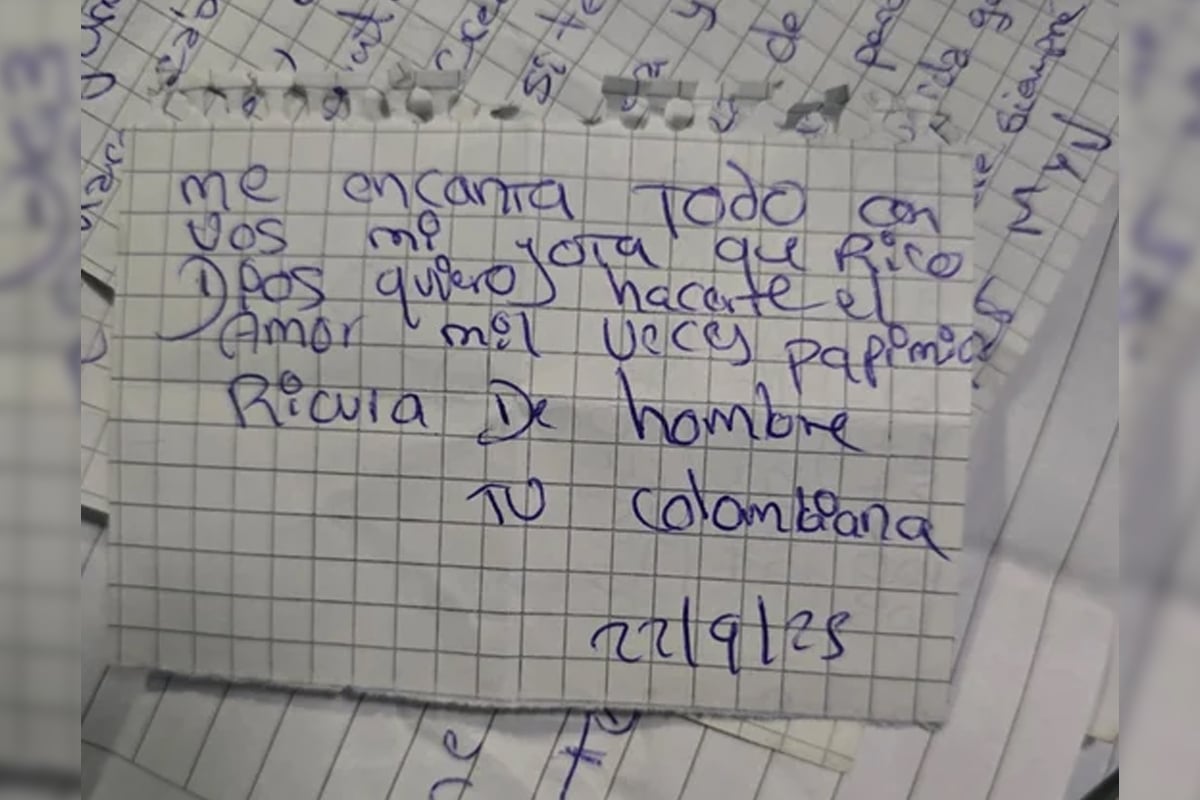 me encanta Todo con
vos mi Jota que Rico
Dios quiero hacerte el
Amor mil veces papi mio
Ricura De hombre
TU colombiana
22/9/25
Si te
y
de